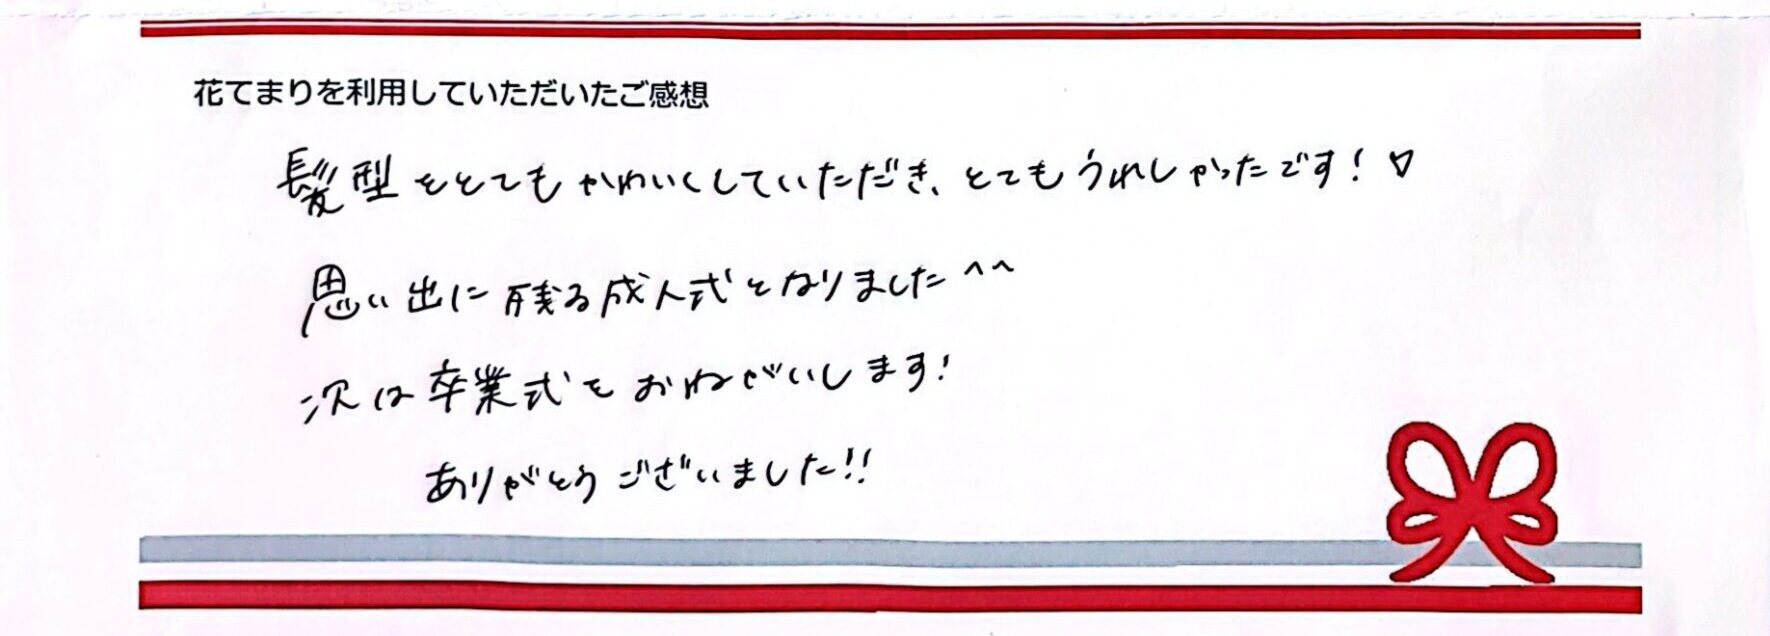 花てまりを利用していただいたご感想
髪型をとてもかわいくしていただき、とてもうれしかったです！♡
思い出に残る成人式となりました^^
次は卒業式をおねがいします！
ありがとうございました!!